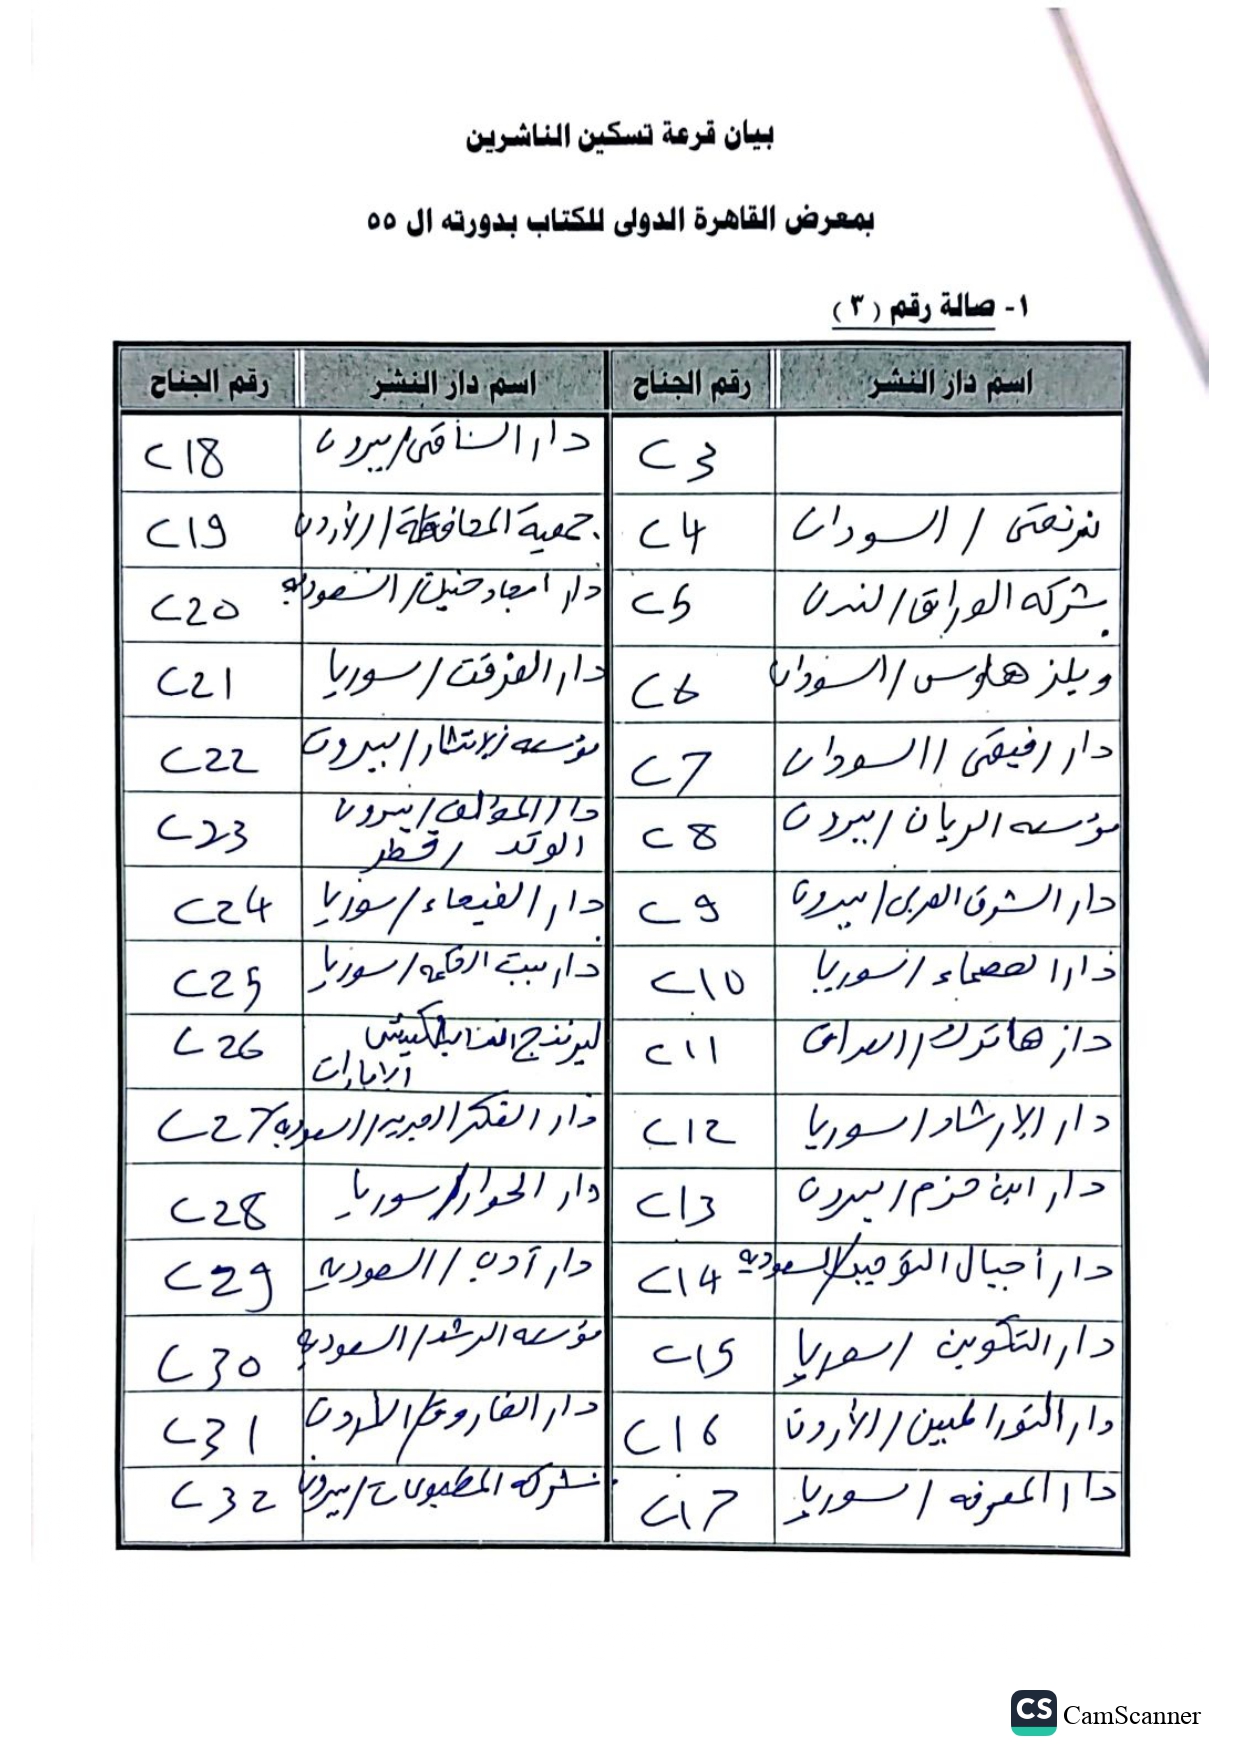 بيان قرعة تسكين الناشرين
بمعرض القاهرة الدولى للكتاب بدورته ال ٥٥
١- صالة رقم ( ٣ )
اسم دار النشر رقم الجناح اسم دار النشر رقم الجناح
C3 دار الساقى / بيروت C18
السودان C4 جمعية المحافظة / الأردن C19
شركه الوراق / لندن C5 دار امجاد حنين / السعوديه C20
ويلز هاوس / السودان C6 دار الفرقد / سوريا C21
دار رفيقى / السودان C7 مؤسسه الانتشار / بيروت C22
مؤسسه الريان / بيروت C8 دار المؤلف / بيروت C23
الوتد / قطر
دار الشرق العربى / بيروت C9 دار الفيحاء / سوريا C24
دار العصماء / سوريا C10 دار بيت الحكمه / سوريا C25
دار / العراق C11 C26
الامارات
دار الارشاد / سوريا C12 دار الفكر / السعوديه C27
دار ابن حزم / بيروت C13 دار الحوار / سوريا C28
دار أجيال التوحيد / السعوديه C14 دار أدب / السعوديه C29
دار التكوين / سوريا C15 مؤسسه الرشد / السعوديه C30
دار النور المبين / الأردن C16 دار الفاروق / الأردن C31
دار المعرفه / سوريا C17 شركه المطبوعات / بيروت C32
CS CamScanner